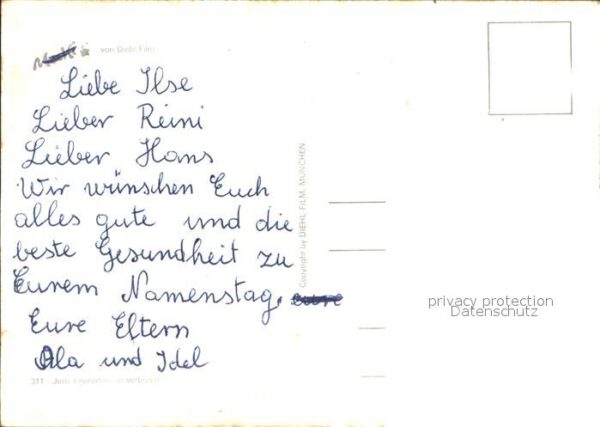 von Diehl Film
Liebe Ilse
Lieber Reini
Lieber Hans
Wir wünschen Euch
alles gute und die
beste Gesundheit zu
Eurem Namenstag.
Eure Eltern
Ala und Idel
311 Jede
Copyright by DIEHL FILM, MÜNCHEN
privacy protection
Datenschutz